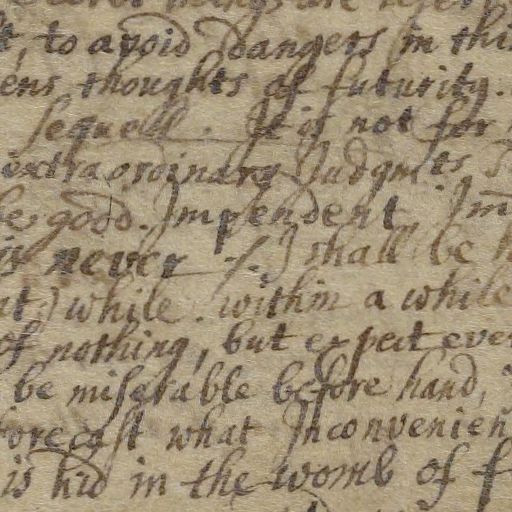 to avoid dangers in thi
ens thoughts of futurity.
sequell. It is not for
extraordinary Judgmts
be good. Impendent. Im
is never /. I shall be h
at) while. within a while
of nothing, but expect ever
be miserable before hand,
forecast what Inconvenien
is hid in the womb of f